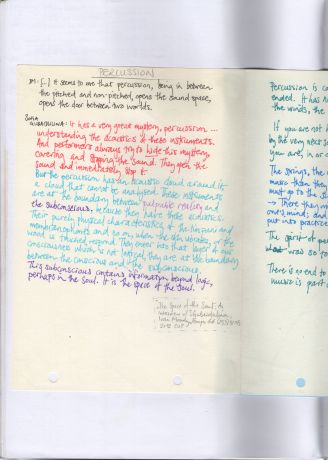 PERCUSSION
IM: [...] it seems to me that percussion, being in between
the pitched and non-pitched, opens the sound space,
opens the door between two worlds.
SOFIA
GUBAIDULINA: It has a very great mystery, percussion ...
understanding the acoustics of these instruments.
And performers always try to hide this mystery,
covering and stopping the sound. They open the
sound and immediately stop it.
But the percussion has an acoustic cloud around it,
a cloud that cannot be analysed. These instruments
are at the boundary between palpable reality and
the subconscious, because they have these acoustics.
Their purely physical characteristics, of the timpani and
membranophones and so on, when the skin vibrates, or the
wood is touched, respond. They enter into that layer of our
consciousness which is not logical, they are at the boundary
between the conscious and the subconscious.
This subconscious contains information beyond logic,
perhaps in the soul. It is the space of the soul.
The Space of the Soul: An
Interview with Sofia Gubaidulina,
Ivan Moody
2012 CUP
Percussion is c
ended. It has n
the words, the
If you are not
by the very next s
you are, in or
The springs, the
music then the
must go to the S
→ There they m
one's mind; and
put into practice
The spirit of pe
wow so fo
There is no end to
music is part